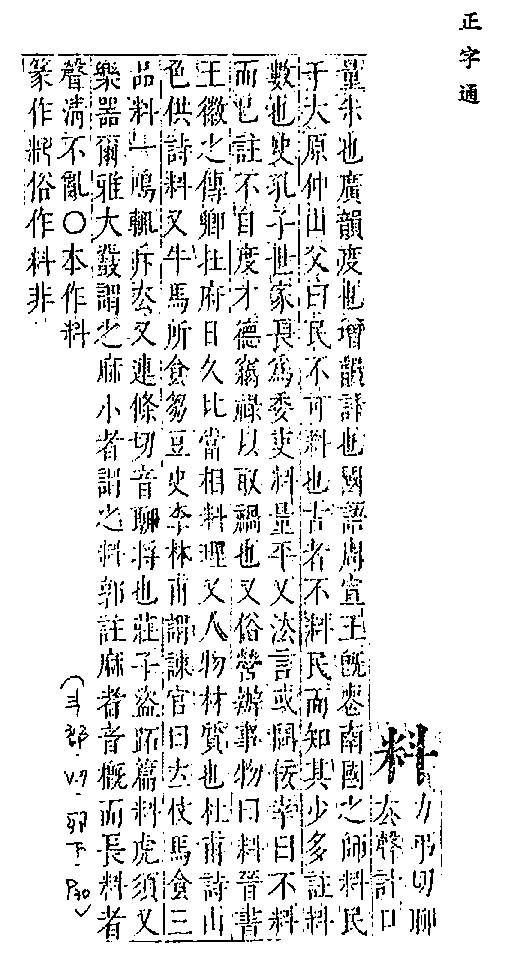 正字通
料
力弔切聊
去聲計口
量米也廣韻度也增韻計也國語周宣王旣喪南國之師料民
于大原仲山父曰民不可料也古者不料民而知其少多註料
數也史孔子世家長爲委吏料量平又法言或問侯幸曰不料
而已註不自度才德竊祿以取禍也又俗營辦事物曰料晉書
王徽之傳卿在府日久比當相料理又人物材質也杜甫詩山
色供詩料又牛馬所食芻豆史李林甫謂諫官曰立仗馬食三
品料一鳴輒斥去又連條切音聊捋也莊子盜跖篇料虎須又
樂器爾雅大鼗謂之麻小者謂之料郭註麻者音槪而長料者
聲清不亂〇本作料
篆作𣂏俗作料非
(斗部.V.7.卯下.P30)